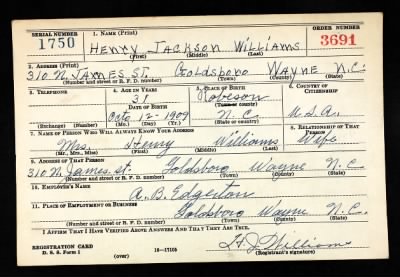 SERIAL NUMBER 1. NAME (Print) ORDER NUMBER
1750 HENRY JACKSON WILLIAMS 3691
(First) (Middle) (Last)
2. ADDRESS (Print)
310 N. JAMES ST. Goldsboro WAYNE N.C.
(Number and street or R. F. D. number) (Town) (County) (State)
3. TELEPHONE 4. AGE IN YEARS 5. PLACE OF BIRTH 6. COUNTRY OF CITIZENSHIP
31 Robeson
DATE OF BIRTH (Town or county)
Oct. 12-1909 N.C. U.S.A.
(Exchange) (Number) (Mo.) (Day) (Yr.) (State or country)
7. NAME OF PERSON WHO WILL ALWAYS KNOW YOUR ADDRESS 8. RELATIONSHIP OF THAT PERSON
Mrs. Henry Williams Wife
(Mr., Mrs., Miss) (First) (Middle) (Last)
9. ADDRESS OF THAT PERSON
310 N. James St. Goldsboro Wayne N.C.
(Number and street or R. F. D. number) (Town) (County) (State)
10. EMPLOYER'S NAME
A. B. Edgerton
11. PLACE OF EMPLOYMENT OR BUSINESS
Goldsboro Wayne N.C.
(Number and street or R. F. D. number) (Town) (County) (State)
I AFFIRM THAT I HAVE VERIFIED ABOVE ANSWERS AND THAT THEY ARE TRUE.
H. J. Williams
REGISTRATION CARD
D. S. S. Form 1 (over) 16—17105 (Registrant's signature)